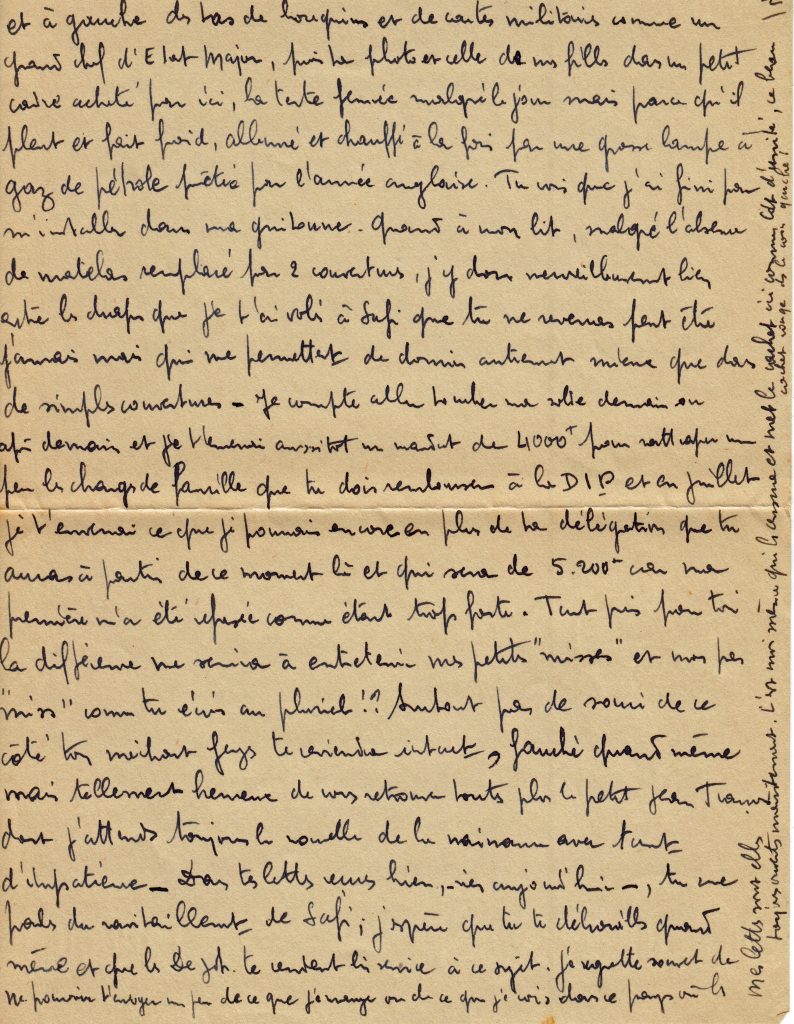 et à gauche des tas de bouquins et de cartes militaires comme un
grand chef d'Etat Major, puis ta photo et celle de nos filles dans un petit
cadre acheté par ici, la tente fermée malgré le jour mais parce qu'il
pleut et fait froid, allumé et chauffé à la fois par une grosse lampe à
gaz de pétrole prêtée par l'armée anglaise. Tu vois que j'ai fini par
m'installer dans ma guitoune. Quand à mon lit, malgré l'absence
de matelas remplacé par 2 couvertures, j'y dors merveilleusement bien
entre les draps que je t'ai volés à Safi que tu ne reverras peut être
jamais mais qui me permettent de dormir autrement mieux que dans
de simples couvertures - Je compte aller toucher ma solde demain ou
après demain et je t'enverrai aussitôt un mandat de 4000f pour rattraper un
peu les charges de famille que tu dois rembourser à la DIP et en juillet
je t'enverrai ce que je pourrai encore en plus de ta délégation que tu
auras à partir de ce moment là et qui sera de 5.200f car ma
première m'a été refusée comme étant trop forte. Tant pis pour toi
la différence me servira à entretenir mes petites "misses" et non pas
"miss" comme tu écris au pluriel!? Surtout pas de souci de ce
côté ton méchant te reviendra intact, fauché quand même
mais tellement heureux de vous retrouver toutes plus le petit Jean
dont j'attends toujours la nouvelle de la naissance avec tant
d'impatience - Dans tes lettres reçues hier, - aujourd'hui -, tu me
parles du ravitaillement de Safi; j'espère que tu te débrouilles quand
même et que les te rendent service à ce sujet. Je regrette souvent de
ne pouvoir t'envoyer un peu de ce que je mange ou de ce que je vois dans ce pays où les
Mes lettres sont elles
toujours ouvertes maintenant. C'est moi même qui les censure et met le cachet ici comme Cdt d'unité, ce beau
cachet rouge dans le coin gauche!